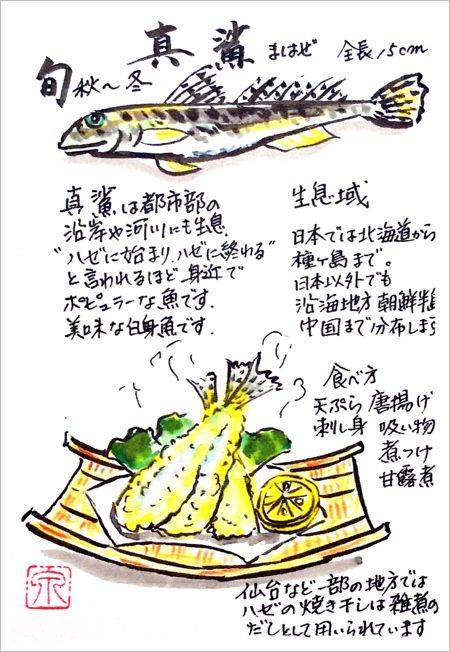 真鯊 まはぜ 全長15cm
旬 秋〜冬
真鯊は都市部の
沿岸や河川にも生息
"ハゼに始まり、ハゼに終わる"
と言われるほど身近で
ポピュラーな魚です。
美味な白身魚です。
生息域
日本では北海道から
種ヶ島まで。
日本以外でも
沿海地方 朝鮮半島
中国まで分布します
食べ方
天ぷら 唐揚げ
刺し身 吸い物
煮つけ
甘露煮
仙台など一部の地方では
ハゼの焼き干しは雑煮の
だしとして用いられています